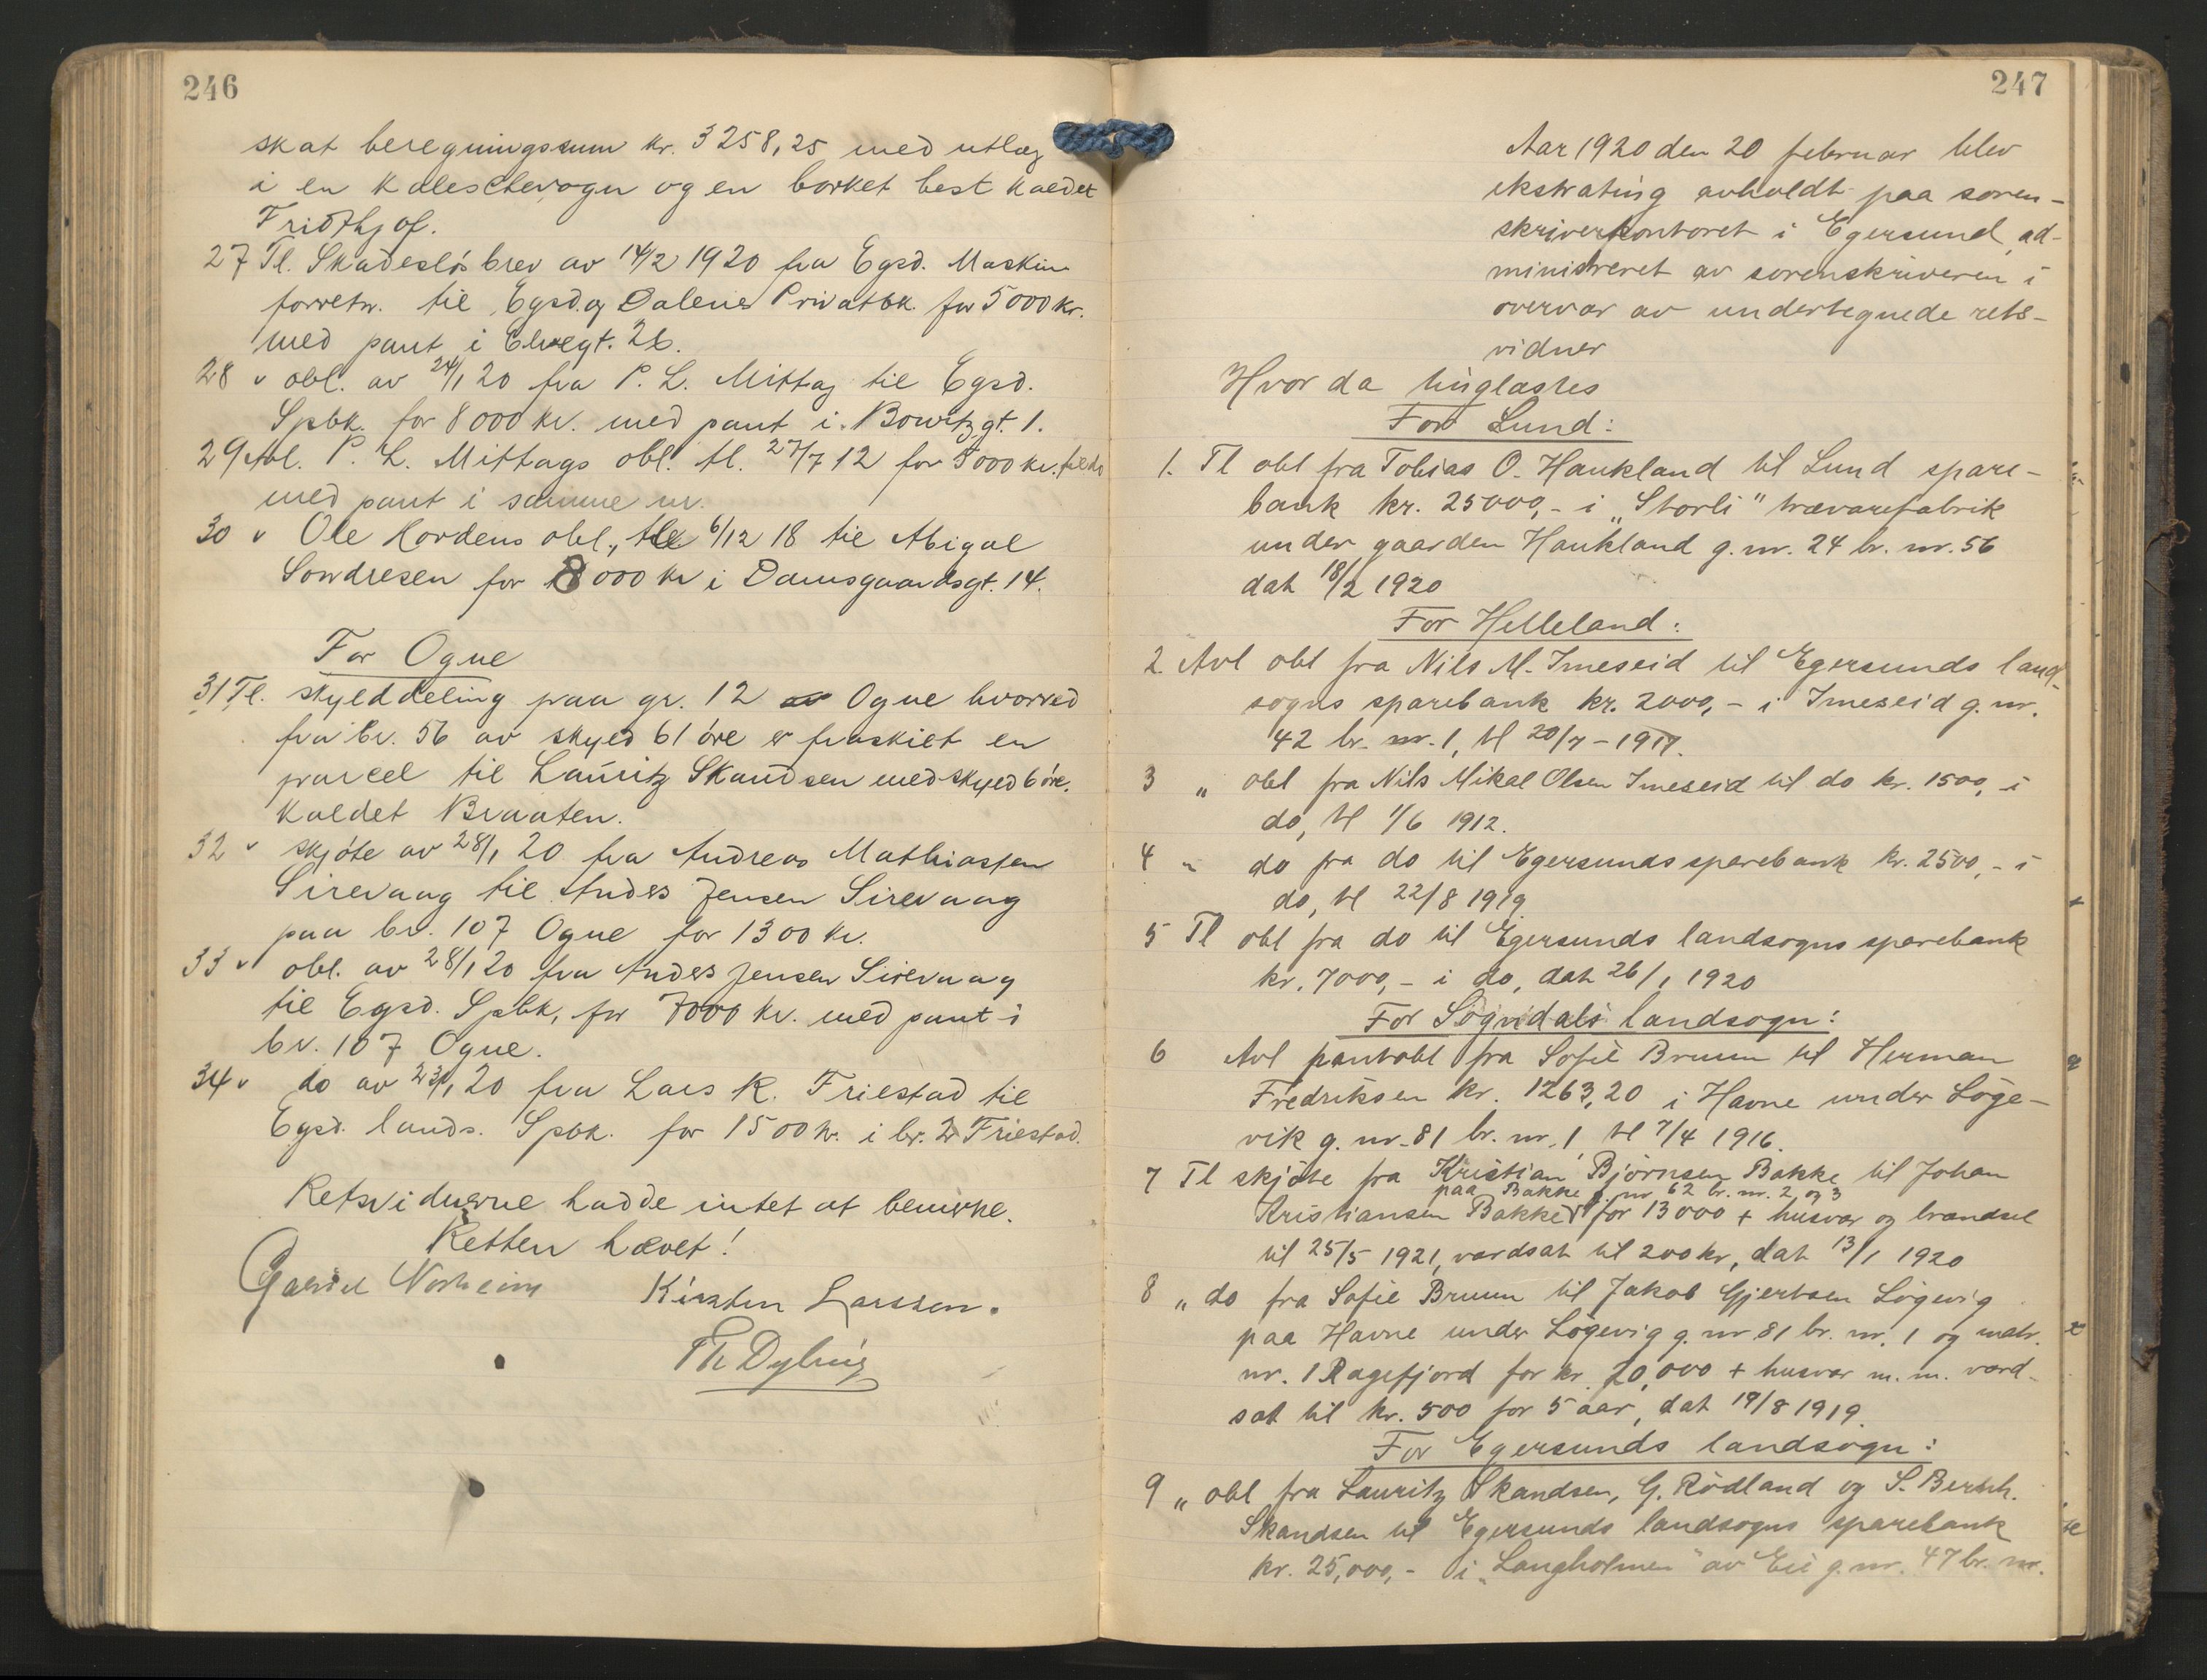 246
skat beregningssum kr. 3258,25 med utlæg
i en kaleschevogn og en borket hest kaldet
Fridthjof.
27 Tl. Skadesløsbrev av 14/2 1920 fra Egsd. Maskin
forretn. til Egsd. og Dalenes Privatbk. for 5000 kr.
med pant i Elvegt. 26.
28 " obl. av 24/1 20 fra P. L. Mittag til Egsd.
Spbk. for 8000 kr. med pant i Bowitzgt. 1.
29 Avl. P. L. Mittags obl. tl. 27/7 12 for 5000 kr. til do
med pant i samme nr.
30 " Ole Hordens obl., tl 6/12 18 til Abigal
Sondresen for 8000 kr i Damsgaardsgt. 14.
For Ogne
31 Tl. skylddeling paa gr. 12 Ogne hvorved
fra br. 56 av skyld 61 øre er fraskilt en
parcel til Lauritz Skaudsen med skyld 6 øre.
kaldet Braaten.
32 " skjøte av 28/1 20 fra Andreas Mathiassen
Sirevaag til Anders Jensen Sirevaag
paa br. 107 Ogne for 1300 kr.
33 " obl. av 28/1 20 fra Anders Jensen Sirevaag
til Egsd. Spbk, for 7000 kr. med pant i
br. 107 Ogne.
34 " do av 23/1 20 fra Lars K. Friestad til
Egsd. lands. Spbk. for 1500 kr. i br. 2 Friestad.
Retsvidnerne hadde intet at bemerke.
Retten hævet!
Gabriel Norheim Kirsten Larssen.
Th Dybing
247
Aar 1920 den 20 februar blev
ekstrating avholdt paa soren-
skriverkontoret i Egersund, ad-
ministreret av sorenskriveren i
overvær av undertegnede rets-
vidner
Hvor da tinglæstes
For Lund:
1. Tl obl fra Tobias O. Haukland til Lund spare-
bank kr. 25000,- i "Storli" trævarefabrik
under gaarden Haukland g. nr. 24 br. nr. 56
dat 18/2 1920
For Helleland:
2. Avl obl fra Nils M. Imeseid til Egersunds land-
sogns sparebank kr. 2000,- i Imeseid g. nr.
42 br. nr. 1, tl 20/7 - 1917.
3 " obl fra Nils Mikal Olsen Imeseid til do kr. 1500,- i
do, tl 1/6 1912.
4 " do fra do til Egersunds sparebank kr. 2500,- i
do, tl 22/8 1919.
5 Tl obl fra do til Egersunds landsogns sparebank
kr. 7000,- i do, dat 26/1 1920
For Sogndals landsogn:
6 Avl pantobl fra Sofie Bruun til Herman
Fredriksen kr. 1263,20 i Havne under Løge-
vik g. nr. 81 br. nr. 1 tl 7/4 1916.
7 Tl skjøte fra Kristian Bjørnsen Bakke til Johan
paa Bakke g. nr 62 br. nr. 2 og 3
Kristiansen Bakke for 13000 + husvær og brændsel
til 25/5 1921, værdsat til 200 kr, dat 13/1 1920
8 " do fra Sofie Bruun til Jakob Gjertsen Løgevig
paa Havne under Løgevig g. nr 81 br. nr. 1 og matr.
nr. 1 Ragefjord for kr 20,000 + husvær m. m. værd-
sat til kr. 500 for 5 aar, dat 19/8 1919.
For Egersunds landsogn:
9 " obl fra Lauritz Skandsen, G. Rødland og S. Bernh.
Skandsen til Egersunds landsogns sparebank
kr. 25,000,- i "Langholmen" av Eie g. nr. 47 br. nr.